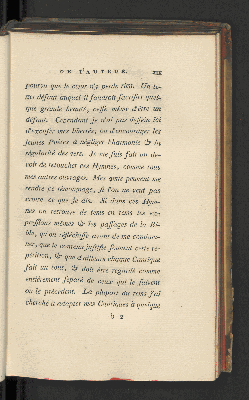 DE L'AUTEUR. XIX
pourvu que le cœur n'y perde rien. Un lé-
ger défaut auquel il faudroit sacrifier quel-
que grande beauté, cesse même d'être un
défaut. Cependant je n'ai pas dessein ici
d'excuser mes libertés, ou d'encourager les
jeunes Poëtes à négliger l'harmonie & la
régularité des vers. Je me suis fait un de-
voir de retoucher ces Hymnes, comme tous
mes autres ouvrages. Mes amis peuvent me
rendre ce témoignage, si l'on ne veut pas
croire ce que je dis. Si dans ces Hym-
nes on retrouve de tems en tems les ex-
pressions mêmes & les passages de la Bi-
ble, qu'on réfléchisse avant de me condam-
ner, que le contenu justifie souvent cette ré-
pétition, & que d'ailleurs chaque Cantique
fait un tout, & doit être regardé comme
entiérement séparé de ceux qui le suivent
ou le précedent. La plupart du tems j'ai
cherché à adapter mes Cantiques à quelque
b 2